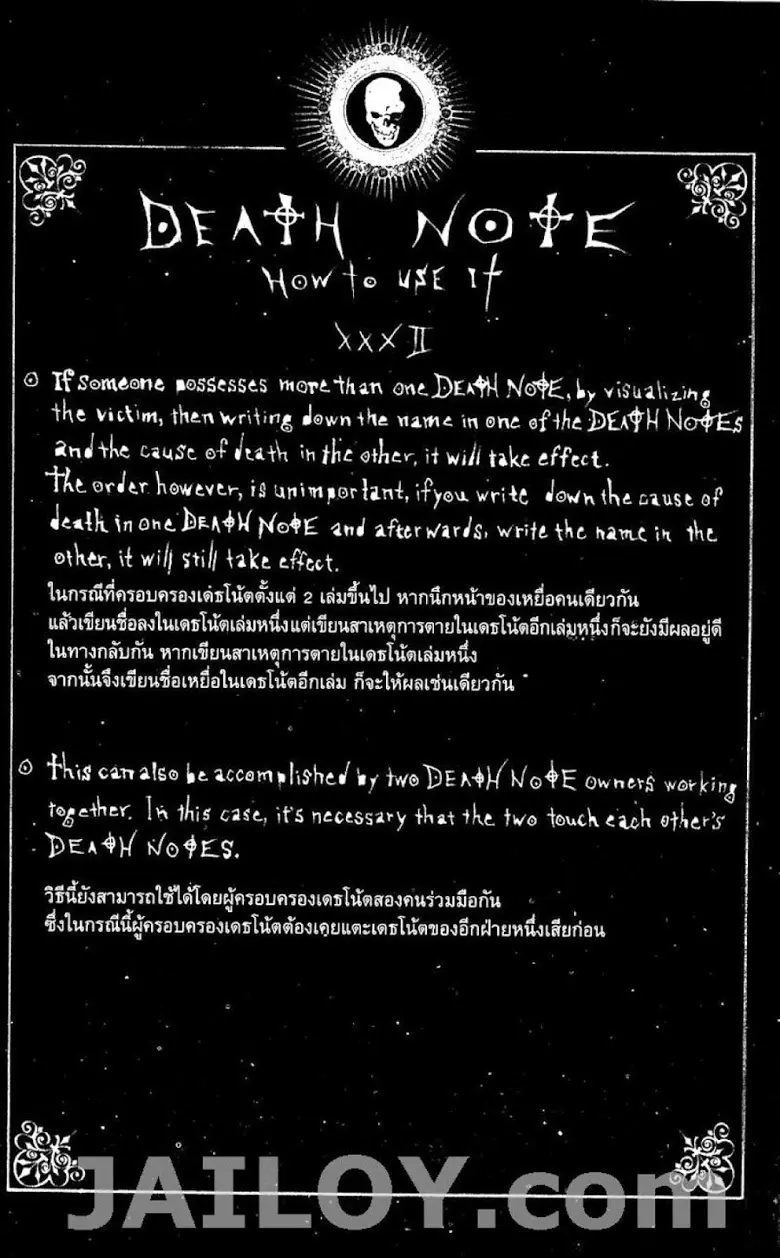 DEATH NOTE
HOW to USE It
XXXII
If someone possesses more than one DEATH NOTE, by visualizing
the victim, then writing down the name in one of the DEATH NOTES
and the cause of death in the other, it will take effect.
The order however, is unimportant, if you write down the cause of
death in one DEATH NOTE and afterwards, write the name in the
other, it will still take effect.
ในกรณีที่ครอบครองเดธโน้ตตั้งแต่ 2 เล่มขึ้นไป หากนึกหน้าของเหยื่อคนเดียวกัน
แล้วเขียนชื่อลงในเดธโน้ตเล่มหนึ่งแต่เขียนสาเหตุการตายในเดธโน้ตอีกเล่มหนึ่งก็จะยังมีผลอยู่ดี
ในทางกลับกัน หากเขียนสาเหตุการตายในเดธโน้ตเล่มหนึ่ง
จากนั้นจึงเขียนชื่อเหยื่อในเดธโน้ตอีกเล่ม ก็จะให้ผลเช่นเดียวกัน
This can also be accomplished by two DEATH NOTE owners working
together. In this case, it's necessary that the two touch each other's
DEATH NOTES.
วิธีนี้ยังสามารถใช้ได้โดยผู้ครอบครองเดธโน้ตสองคนร่วมมือกัน
ซึ่งในกรณีนี้ผู้ครอบครองเดธโน้ตต้องเคยแตะเดธโน้ตของอีกฝ่ายหนึ่งเสียก่อน
JAILOY.com